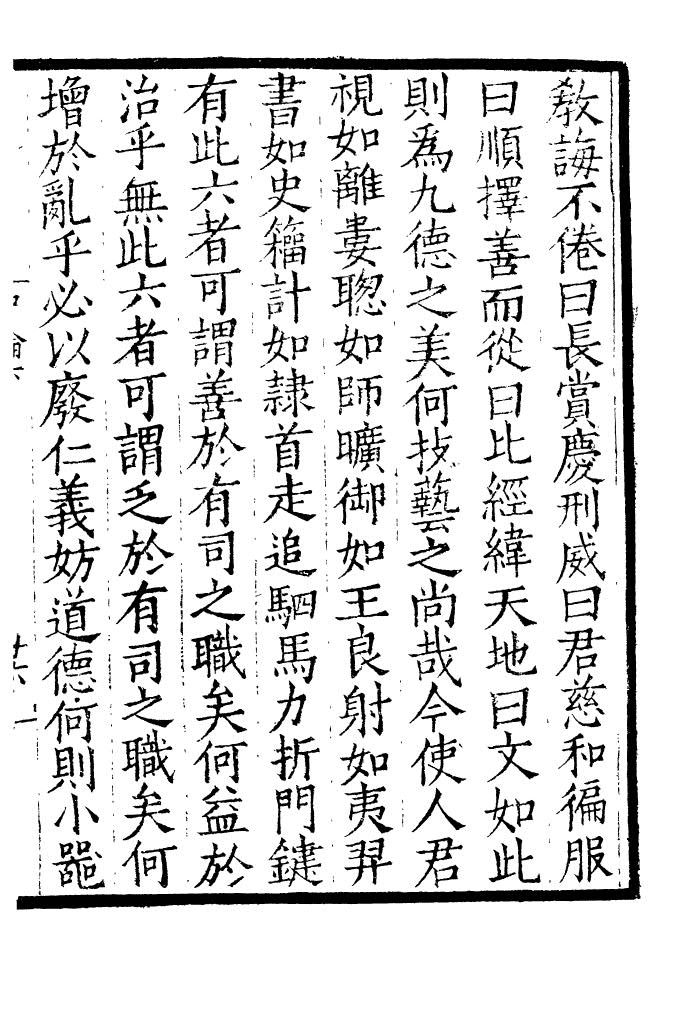 敎誨不倦曰長賞慶刑威曰君慈和徧服
曰順擇善而從曰比經緯天地曰文如此
則爲九德之美何技藝之尚哉今使人君
視如離婁聰如師曠御如王良射如夷羿
書如史籒計如隷首走追駟馬力折門鍵
有此六者可謂善於有司之職矣何益於
治乎無此六者可謂乏於有司之職矣何
增於亂乎必以廢仁義妨道德何則小器